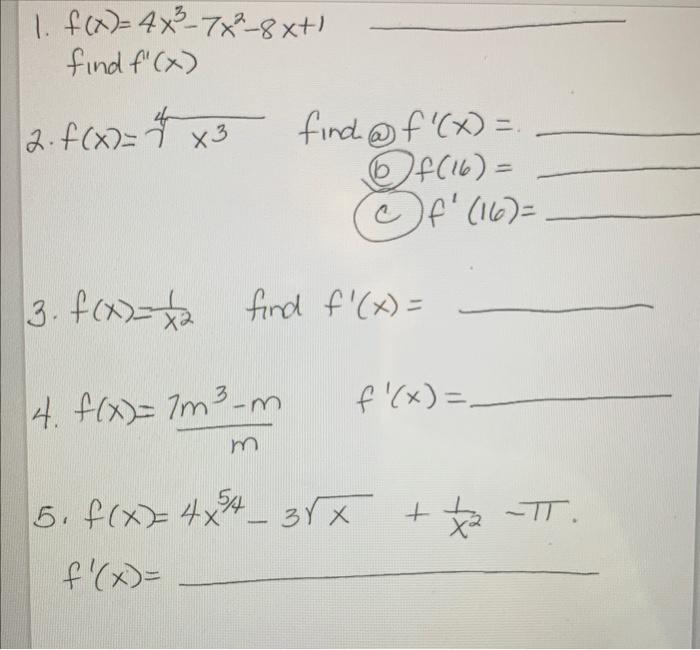 1. f(x)= 4x³-7x²-8x+1 ______
find f'(x)
2. f(x)= ∜x³ find ⓐ f'(x) = ______
ⓑ f(16) = ______
ⓒ f'(16)= ______
3. f(x)= 1/x² find f'(x) = ______
4. f(x)= (7m³-m)/m f'(x)= ______
5. f(x)= 4x^(5/4) - 3√x + 1/x² - π.
f'(x)= ______